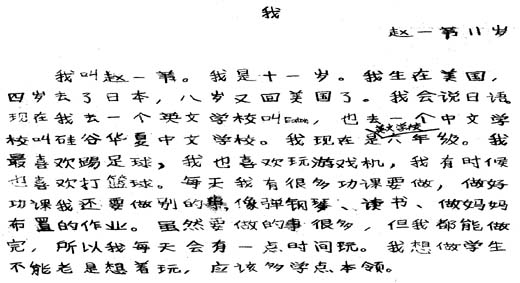 我
赵一苇 11岁
我叫赵一苇。我是十一岁。我生在美国,
四岁去了日本,八岁又回美国了。我会说日语。
现在我去一个英文学校叫Eaton,也去一个中文学
校叫硅谷华夏中文学校。我现在是英文学校六年级。我
最喜欢踢足球,我也喜欢玩游戏机,我有时候
也喜欢打篮球。每天我有很多功课要做,做好
功课我还要做别的事,像弹钢琴、读书、做妈妈
布置的作业。虽然要做的事很多,但我都能做
完,所以我每天会有一点时间玩。我想做学生
不能老是想着玩,应该多学点本领。